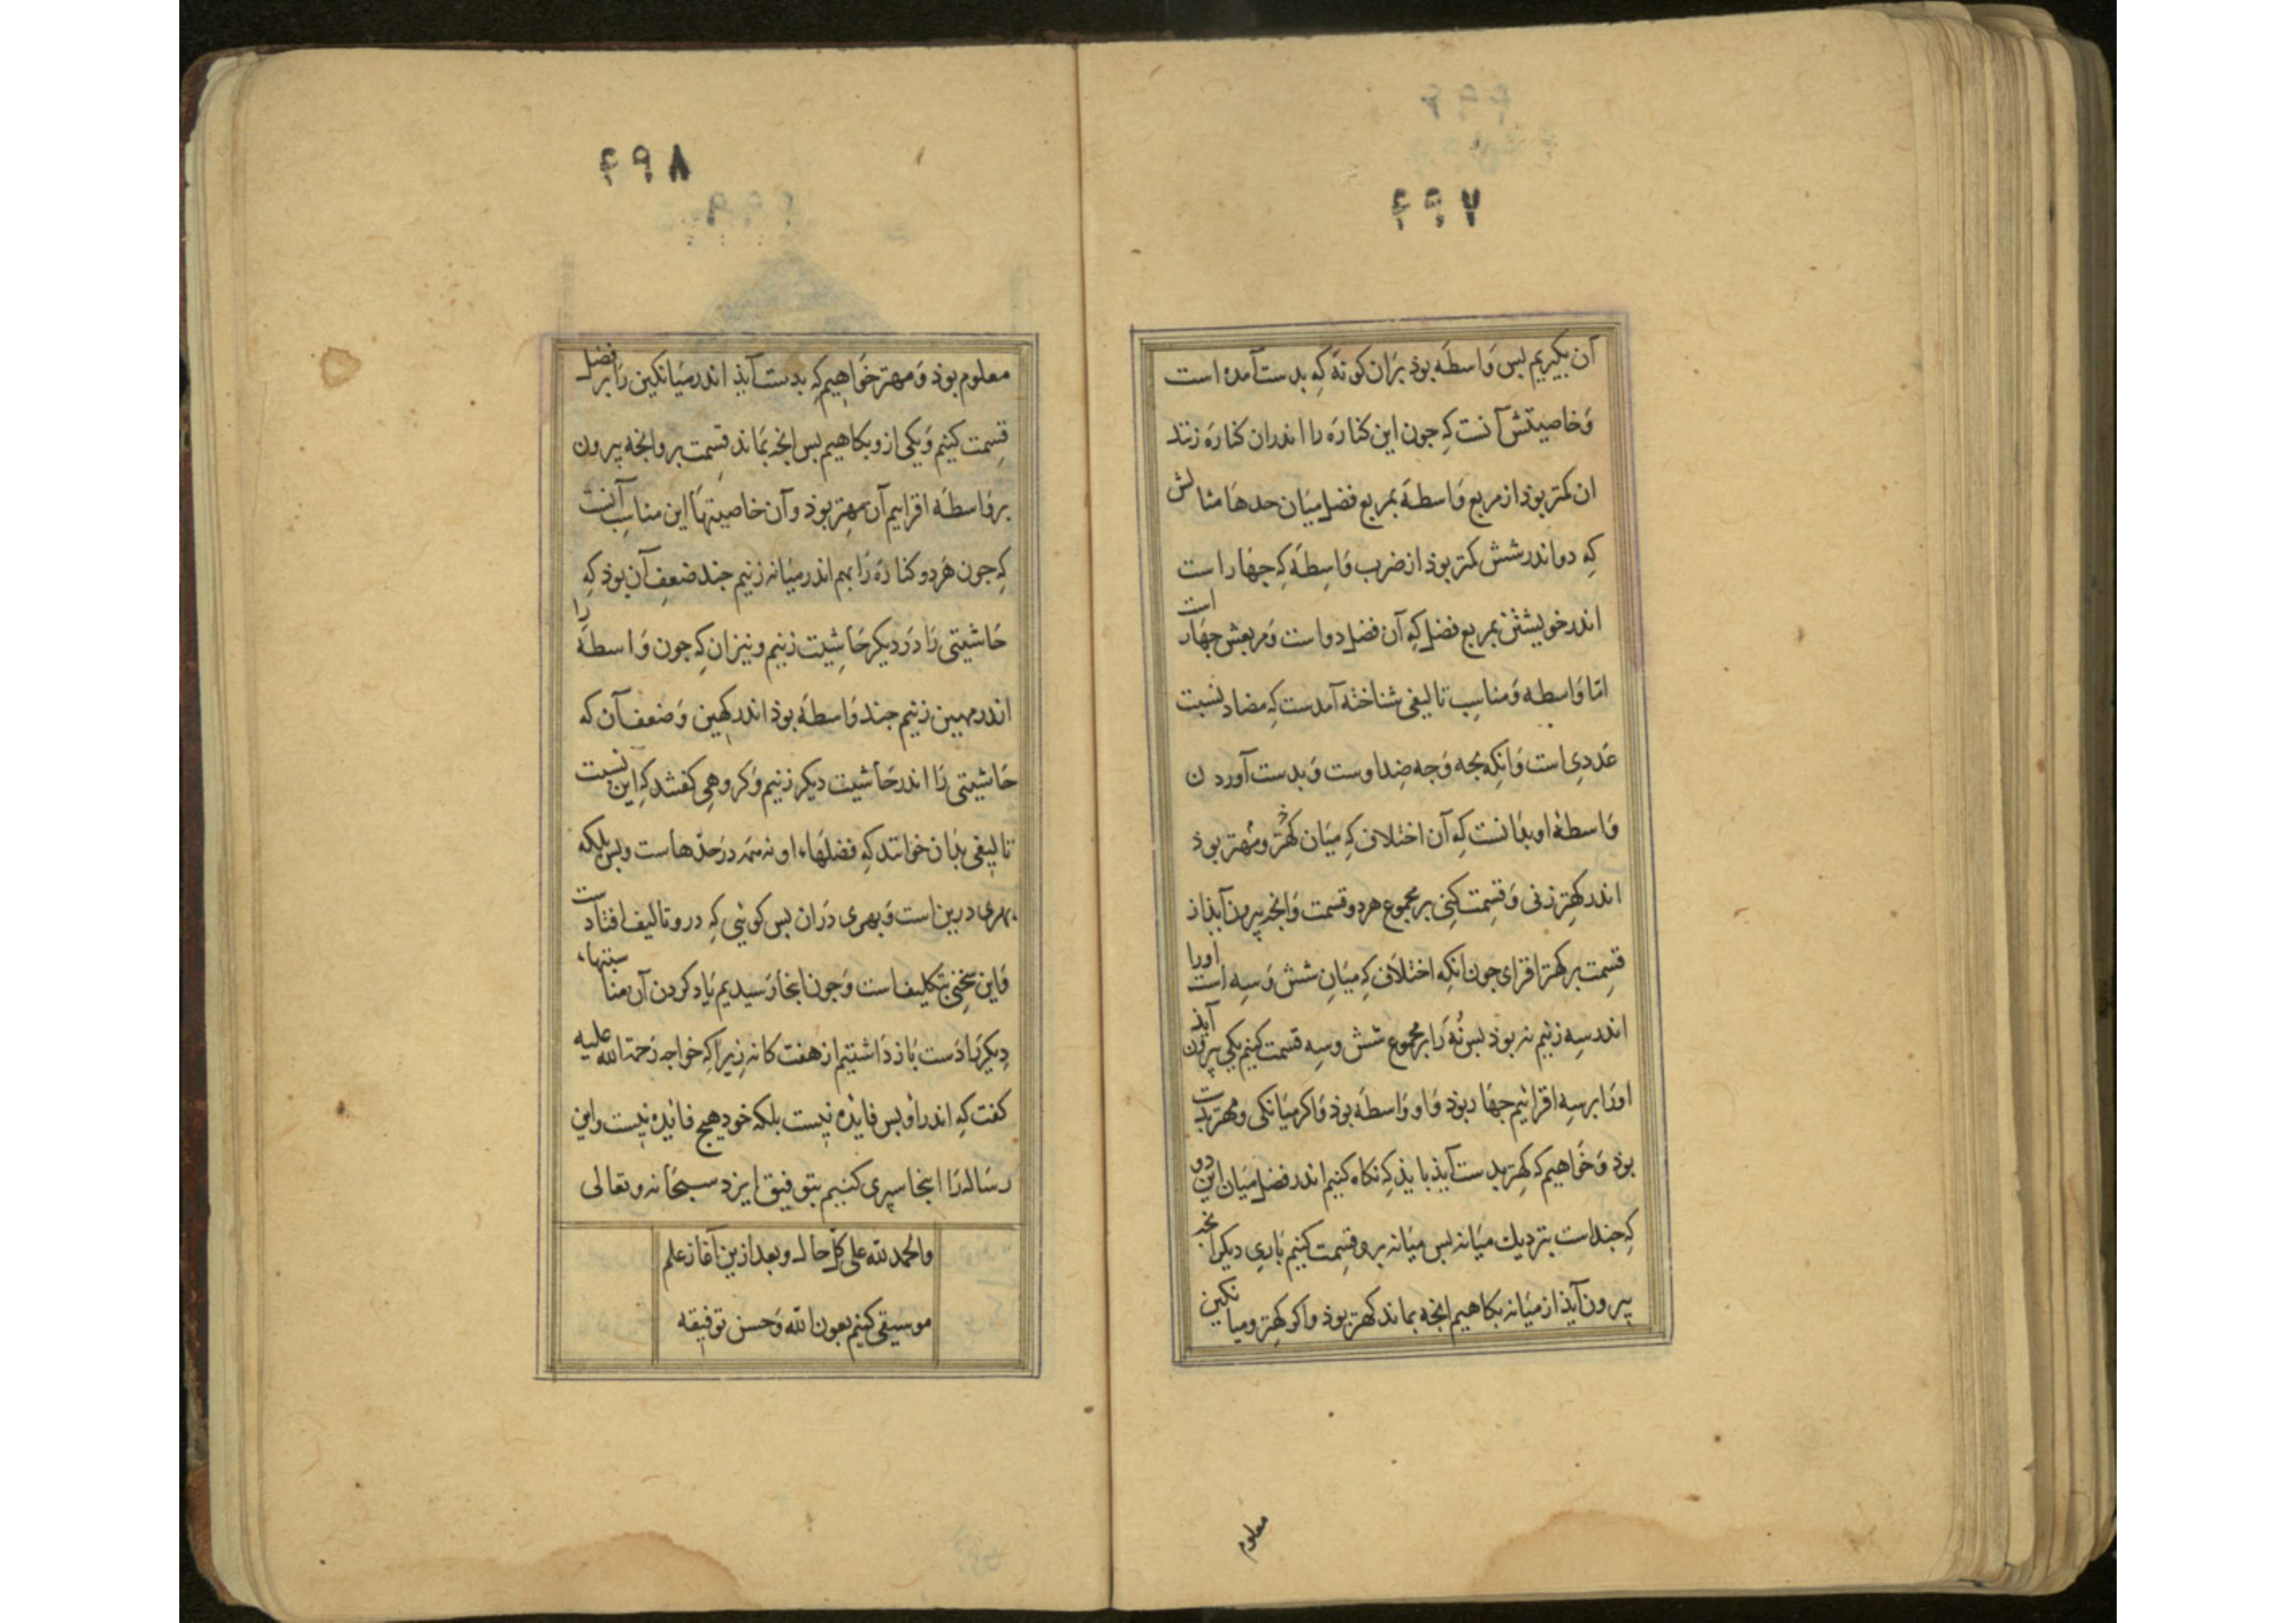 ۴۹۷
آن بگیریم بس وَاسطَه بوذ بَران کونَه کِه بدست آمده است
وَخاصیتش آنست کِه جون این کنارَه را اندران کنارَه زنند
ان کمتر بوذ از مربع وَاسطَه بمربع فضل میَان حدهَا مثالش
کِه دو اندر شش کمتر بوذ از ضرب وَاسِطَه کِه جهَار است
اندر خویشتن بمربع فضل کِه آن فضل دو است وَمربعش جهَار است
امّا وَاسطه وَمناسِب تالیفی شناخته آمدست کِه مضاد نسبت
عَددِی است وَانکِه بجه وَجه ضِد اوست وَبدست آوردن
وَاسطهٔ او بذانست کِه آن اختلاف کِه میَان کهتر ومهتر بوذ
اندر کهتر زنی وَقسِمت کنِی بر مجموع هردو قسمت وَانجه بیرون آیذ از
قسِمت بر کهتر افزای جون انکِه اختلافی کِه میَانِ شش وَسِه است اورا
اندر سِه زنیم نه بوذ بس نُه رَا بر مجموع شش وسِه قسمت کنیم یکی بیرون آیذ
اورَا بر سِه افزائیم جهَار بوذ وَاو وَاسطَه بوذ وَاکر میَانکی ومهتر بدست
بوذ وَخوَاهیم کِه کهتر بدست آیذ بایذ کِه نکاه کنیم اندر فضل میَان این دو
کِه جند است بنزدیک میَانه بس میَانه برو قسِمت کنیم بَارِی دیکر انجه
بیرون آیذ از میَانه بکاهیم انجه بماند کهتر بوذ واکر کهتر ومیانکین
معلوم
۴۹۸
معلوم بوذ وَمهتر خوَاهیم کِه بدست آیذ اندر میَانکین رَا بر فضل
قسِمت کنیم وَیکی ازو بکاهیم بس انجه بمَاند قسِمت برو انجه بیرون
بر وَاسطَه افزایم آن مهتر بوذ وآن خاصیتهَا این مناسِب آنست
کِه جون هَردو کنارَه رَا بهم اندر میَانه زنیم جند ضعفِ آن بوذ کِه
حَاشیتی رَا دَر دیکر حَاشِیت زنیم ونیز ان کِه جون وَاسطَه را
اندر مهین زنیم جند وَاسطَه بوذ اندر کِهین وَضعف آن که
حَاشیتی رَا اندر حَاشیت دیکر زنیم وَکروهِی کفتند کِه این نسبت
تالیفی بذان خوانند کِه فضلهَاء او نه همه درَ حدّها است وبس بلکه
بهری درین است وَبهری دَران بس کوئی کِه درو تالیف افتاد است
وَاین سخنِی بتکلیف است وَجون اینجا رَسیدیم یَاد کردن آن مناسبتهاء
دِیکر رَا دَست بَاز دَاشتیم از هفت کانه زیرَا کِه خواجه رَحمة الله علیه
کفت کِه اندر او بس فایده نیست بلکه خود هیج فایده نیست واین
رسَاله رَا اینجا سپری کنیم بتوفیق ایزد سبحَانه وتعالی
والحمد لله علی کلّ حال وبعد ازین آغاز علم
موسیقی کنیم بعون الله وَحسن توفیقه